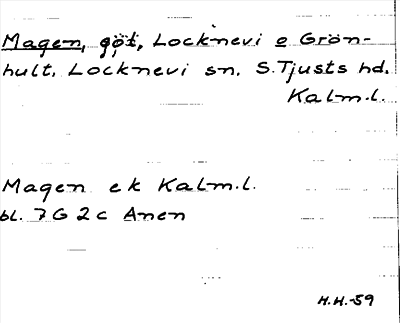 Magen, göt, Locknevi o Grön-
hult, Locknevi sn, S. Tjusts hd.
Kalm.l.
Magen ek Kalm.l.
bl. 7 G 2 c Anen
H.H.-59